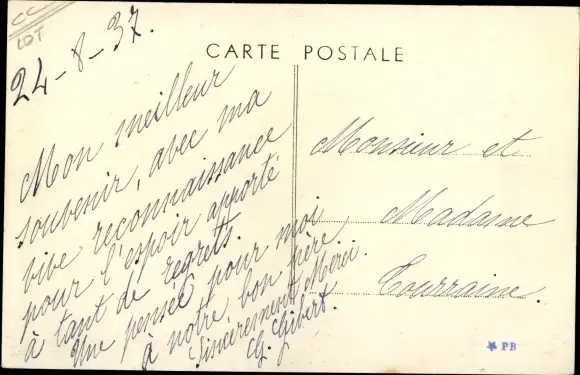 CC
LOT
24-8-37.
CARTE POSTALE
Mon meilleur
souvenir, avec ma
vive reconnaissance
pour l'espoir apporté
à tant de regrets.
Une pensée pour moi
à notre bon père
Sincèrement Merci.
G. Gibert.
Monsieur et
Madame
Tourraine.
PB